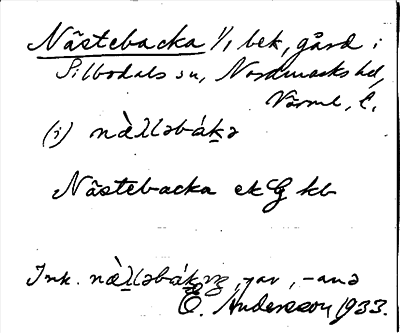 Nästebacka 1/1 bek, gård i
Silbodals sn, Nordmarks hd,
Värml, l.
(i) nàɪ̯ləbákə
Nästebacka ek G kb
Ink. , -ar, -anə
E. Andersson 1933.